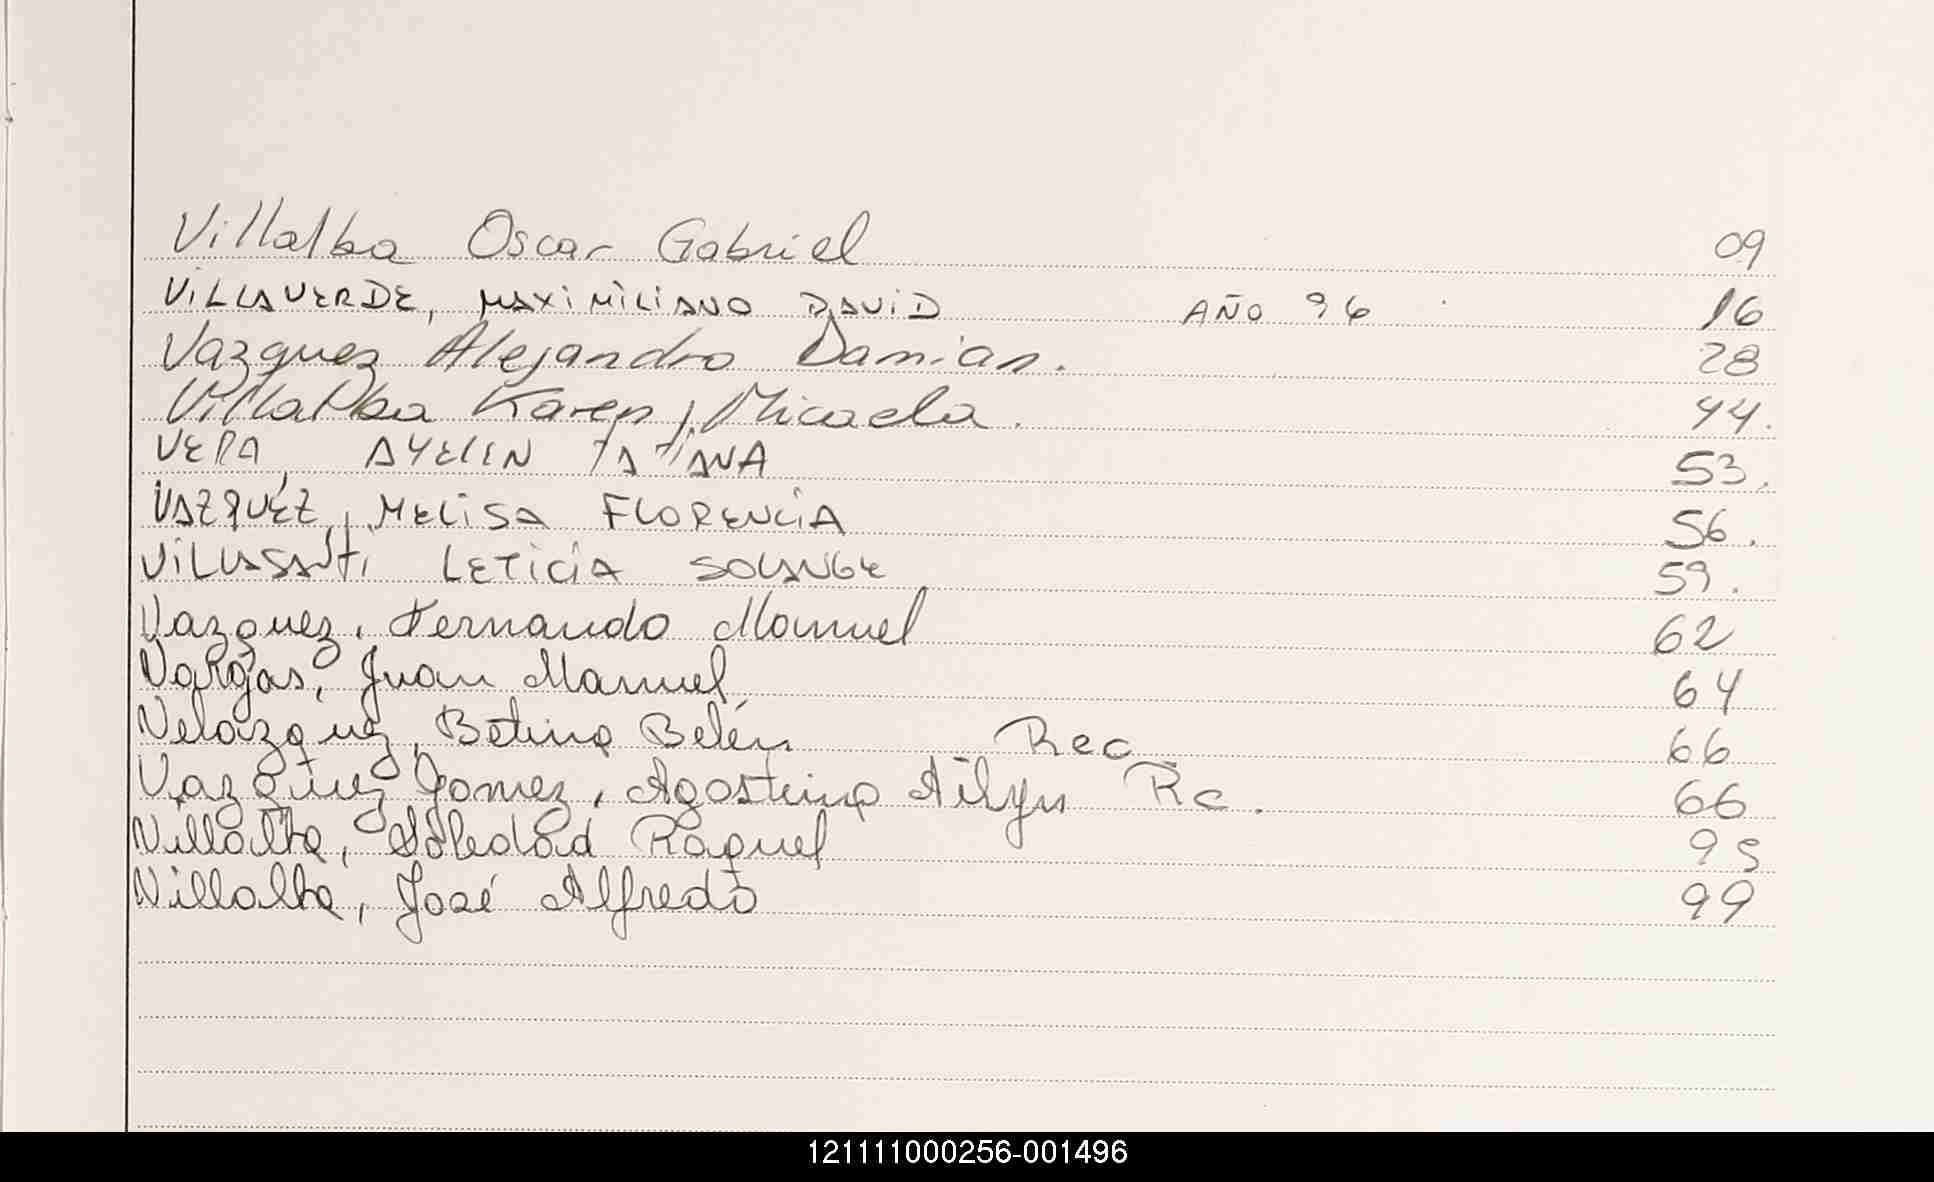 Villalba Oscar Gabriel 09
VILLAVERDE, MAXIMILIANO DAVID AÑO 96 16
Vazquez Alejandro Damian. 28
Villalba Karen, Micaela. 44.
VERA, AYELEN TATIANA 53.
VAZQUEZ, MELISA FLORENCIA 56.
VILLASANTI LETICIA SOLANGE 59.
Vazquez, Fernando Manuel 62
Vargas, Juan Manuel 64
Velázquez, Betina Belén Rec 66
Vazquez Gomez, Agostina Ailyn Rc. 66
Villalba, Soledad Raquel 95
Villalba, José Alfredo 99
121111000256-001496